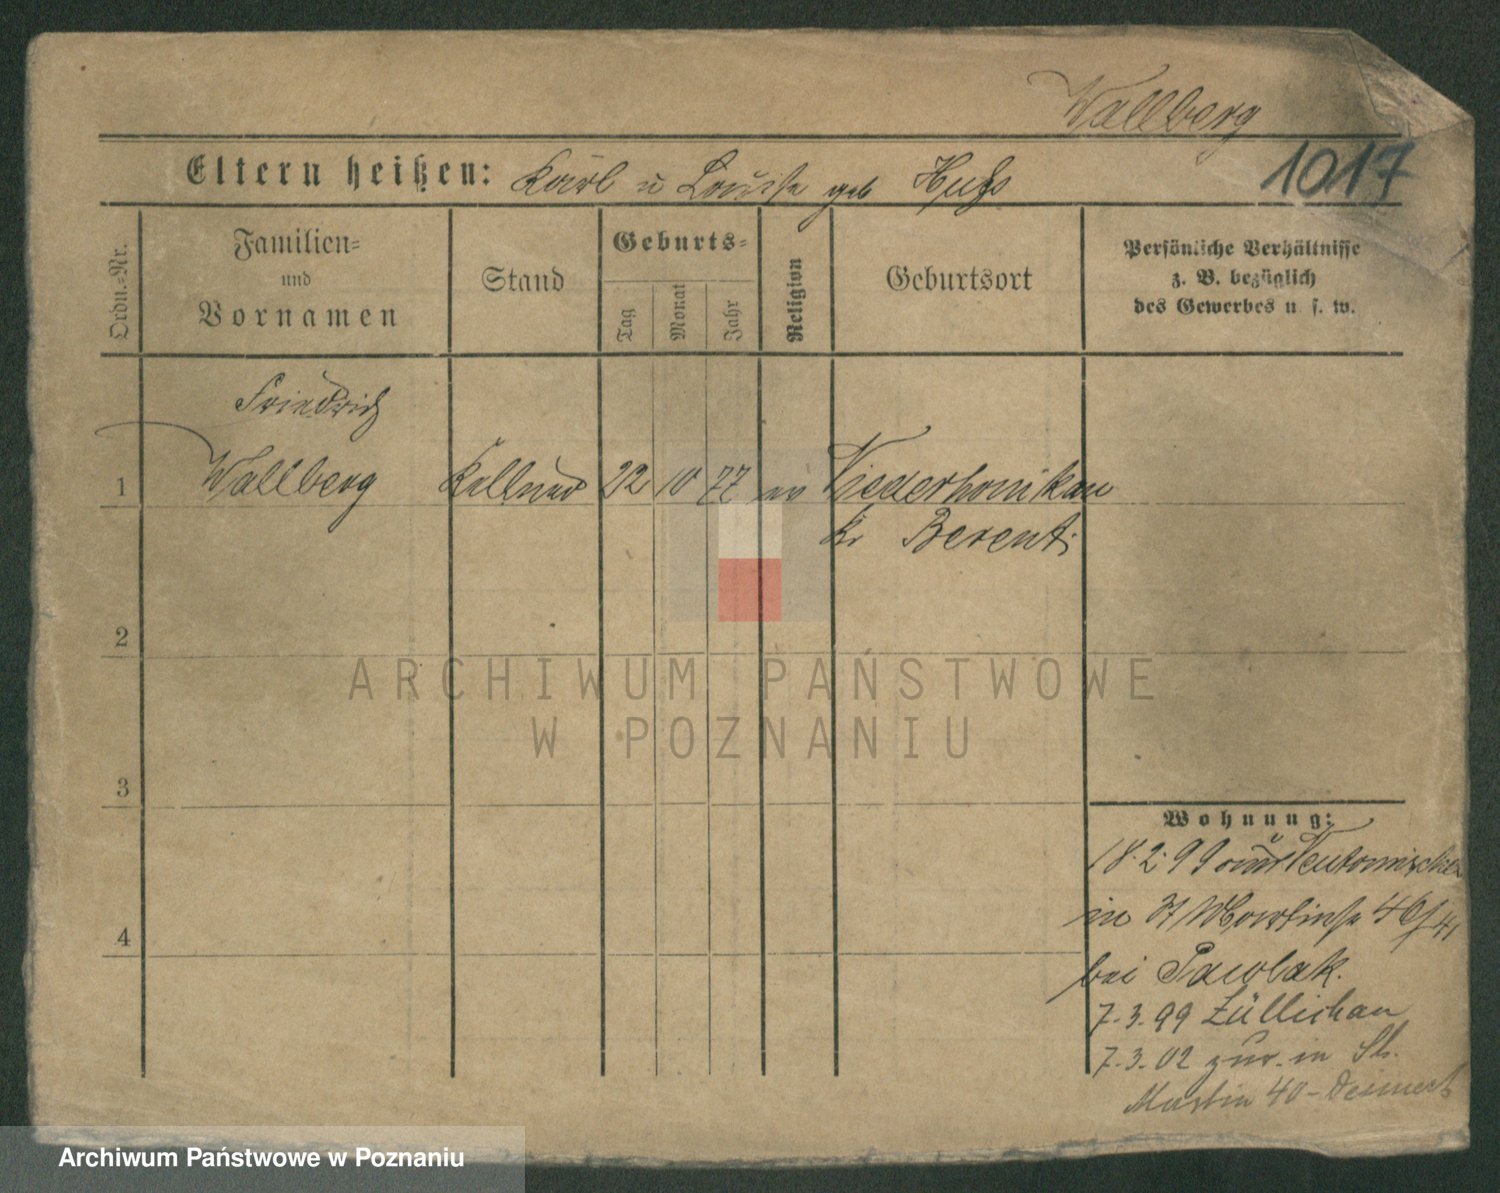 Wallberg
1017
Eltern heißen: Karl u Louise geb Huß
Ordn.-Nr.
Familien-
und
Vornamen
Stand
Geburts-
Tag
Monat
Jahr
Religion
Geburtsort
Persönliche Verhältnisse
z. B. bezüglich
des Gewerbes u. s. w.
Friedrich
1 Wallberg Kellner 22 10 77 ev
Kr Berent
2
3
4
ARCHIWUM PAŃSTWOWE
W POZNANIU
Wohnung:
18.2.99 aus
in St Martinstr 40/41
bei Pawlak.
7.3.99 Züllichau
7.3.02 zur. in St.
Martin 40 -
Archiwum Państwowe w Poznaniu